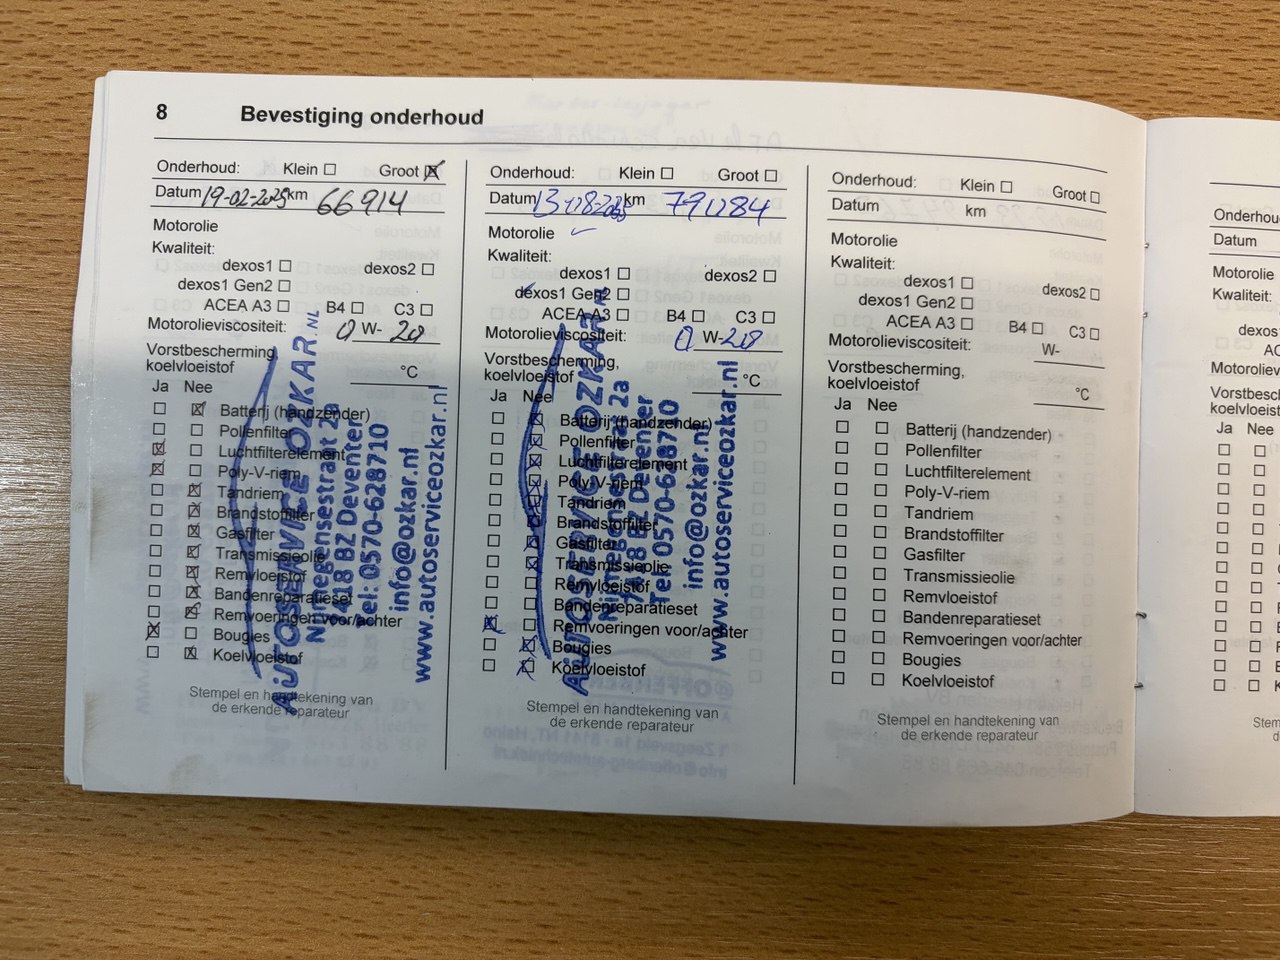 8 Bevestiging onderhoud
Onderhoud: Klein ☐ Groot ☒
Datum 19-02-2025 km 66914
Motorolie
Kwaliteit:
dexos1 ☐ dexos2 ☐
dexos1 Gen2 ☐
ACEA A3 ☐ B4 ☐ C3 ☐
Motorolieviscositeit: 0 W- 20
Vorstbescherming,
koelvloeistof °C
Ja Nee
☐ ☒ Batterij (handzender)
☐ ☐ Pollenfilter
☒ ☐ Luchtfilterelement
☒ ☐ Poly-V-riem
☐ ☒ Tandriem
☐ ☒ Brandstoffilter
☐ ☒ Gasfilter
☐ ☒ Transmissieolie
☐ ☒ Remvloeistof
☐ ☒ Bandenreparatieset
☐ ☒ Remvoeringen voor/achter
☒ ☐ Bougies
☐ ☒ Koelvloeistof
Stempel en handtekening van
de erkende reparateur
AUTOSERVICE OZKAR.NL
Nijmegensestraat 2a
7418 BZ Deventer
Tel: 0570-628710
info@ozkar.nl
www.autoserviceozkar.nl
Onderhoud: Klein ☐ Groot ☐
Datum 13-08-2025 km 79084
Motorolie ✓
Kwaliteit:
dexos1 ☐ dexos2 ☐
dexos1 Gen2 ☐
ACEA A3 ☐ B4 ☐ C3 ☐
Motorolieviscositeit: 0 W-20
Vorstbescherming,
koelvloeistof °C
Ja Nee
☐ ☒ Batterij (handzender)
☐ ☒ Pollenfilter
☐ ☒ Luchtfilterelement
☐ ☒ Poly-V-riem
☐ ☒ Tandriem
☐ ☒ Brandstoffilter
☐ ☒ Gasfilter
☐ ☒ Transmissieolie
☐ ☐ Remvloeistof
☐ ☐ Bandenreparatieset
☒ ☐ Remvoeringen voor/achter
☐ ☒ Bougies
☐ ☒ Koelvloeistof
Stempel en handtekening van
de erkende reparateur
AUTOSERVICE OZKAR.NL
Nijmegensestraat 2a
7418 BZ Deventer
Tel: 0570-628710
info@ozkar.nl
www.autoserviceozkar.nl
Onderhoud: Klein ☐ Groot ☐
Datum km
Motorolie
Kwaliteit:
dexos1 ☐ dexos2 ☐
dexos1 Gen2 ☐
ACEA A3 ☐ B4 ☐ C3 ☐
Motorolieviscositeit: W-
Vorstbescherming,
koelvloeistof °C
Ja Nee
☐ ☐ Batterij (handzender)
☐ ☐ Pollenfilter
☐ ☐ Luchtfilterelement
☐ ☐ Poly-V-riem
☐ ☐ Tandriem
☐ ☐ Brandstoffilter
☐ ☐ Gasfilter
☐ ☐ Transmissieolie
☐ ☐ Remvloeistof
☐ ☐ Bandenreparatieset
☐ ☐ Remvoeringen voor/achter
☐ ☐ Bougies
☐ ☐ Koelvloeistof
Stempel en handtekening van
de erkende reparateur
Datum
Motorolie
Kwaliteit:
dexos
Ja Nee